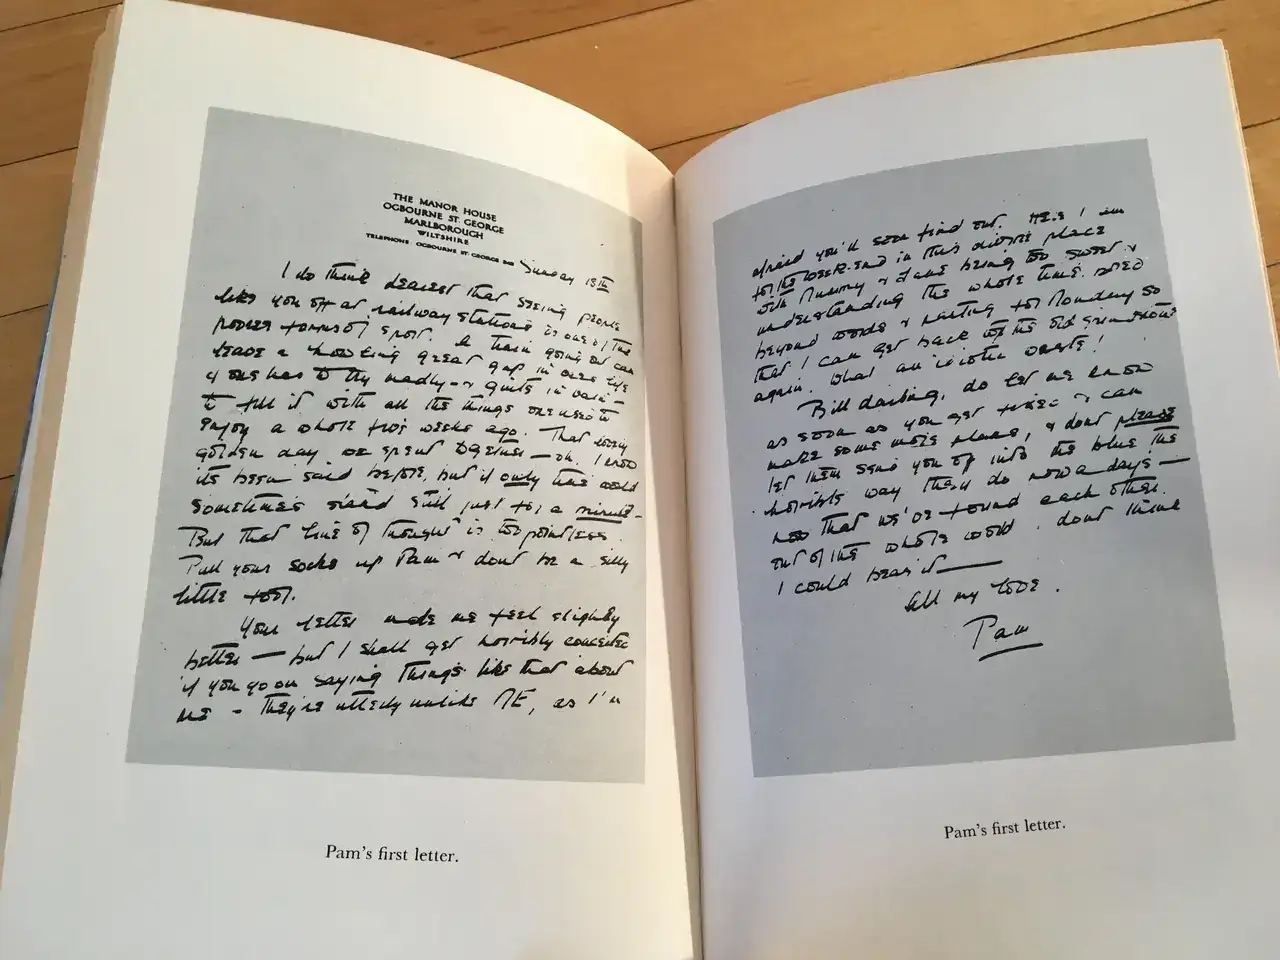 THE MANOR HOUSE
OGBOURNE ST. GEORGE
MARLBOROUGH
WILTSHIRE
TELEPHONE OGBOURNE ST GEORGE
Sunday 18th
I do think dearest that seeing people
like you off at railway stations is one of the
poorer forms of sport. A train going out can
leave a howling great gap in ones life
& one has to try madly - & quite in vain -
to fill it with all the things one used to
enjoy a whole five weeks ago. That lovely
golden day we spent together - oh! I know
its been said before, but if only time could
sometimes stand still just for a minute -
But that line of thought is too pointless.
Pull your socks up Pam & dont be a silly
little fool.
Your letter made me feel slightly
better — but I shall get horribly conceited
if you go on saying things like that about
me - they're utterly unlike ME, as I'm
Pam's first letter.
afraid you'll soon find out. Here I am
for the week-end in this divine place
with Mummy & Jane being too sweet &
understanding the whole time, bored
beyond words & panting for Monday so
that I can get back to the old grindstone
again. What an idiotic waste!
Bill darling, do let me know
as soon as you get fixed & can
make some more plans, & dont please
let them send you off into the blue the
horrible way they do nowadays —
now that we've found each other
out of the whole world I dont think
I could bear it —
All my love.
Pam
Pam's first letter.